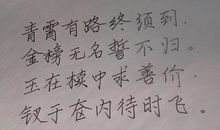 青霄有路终须到，
金榜无名誓不归。
玉在椟中求善价，
钗于奁内待时飞。